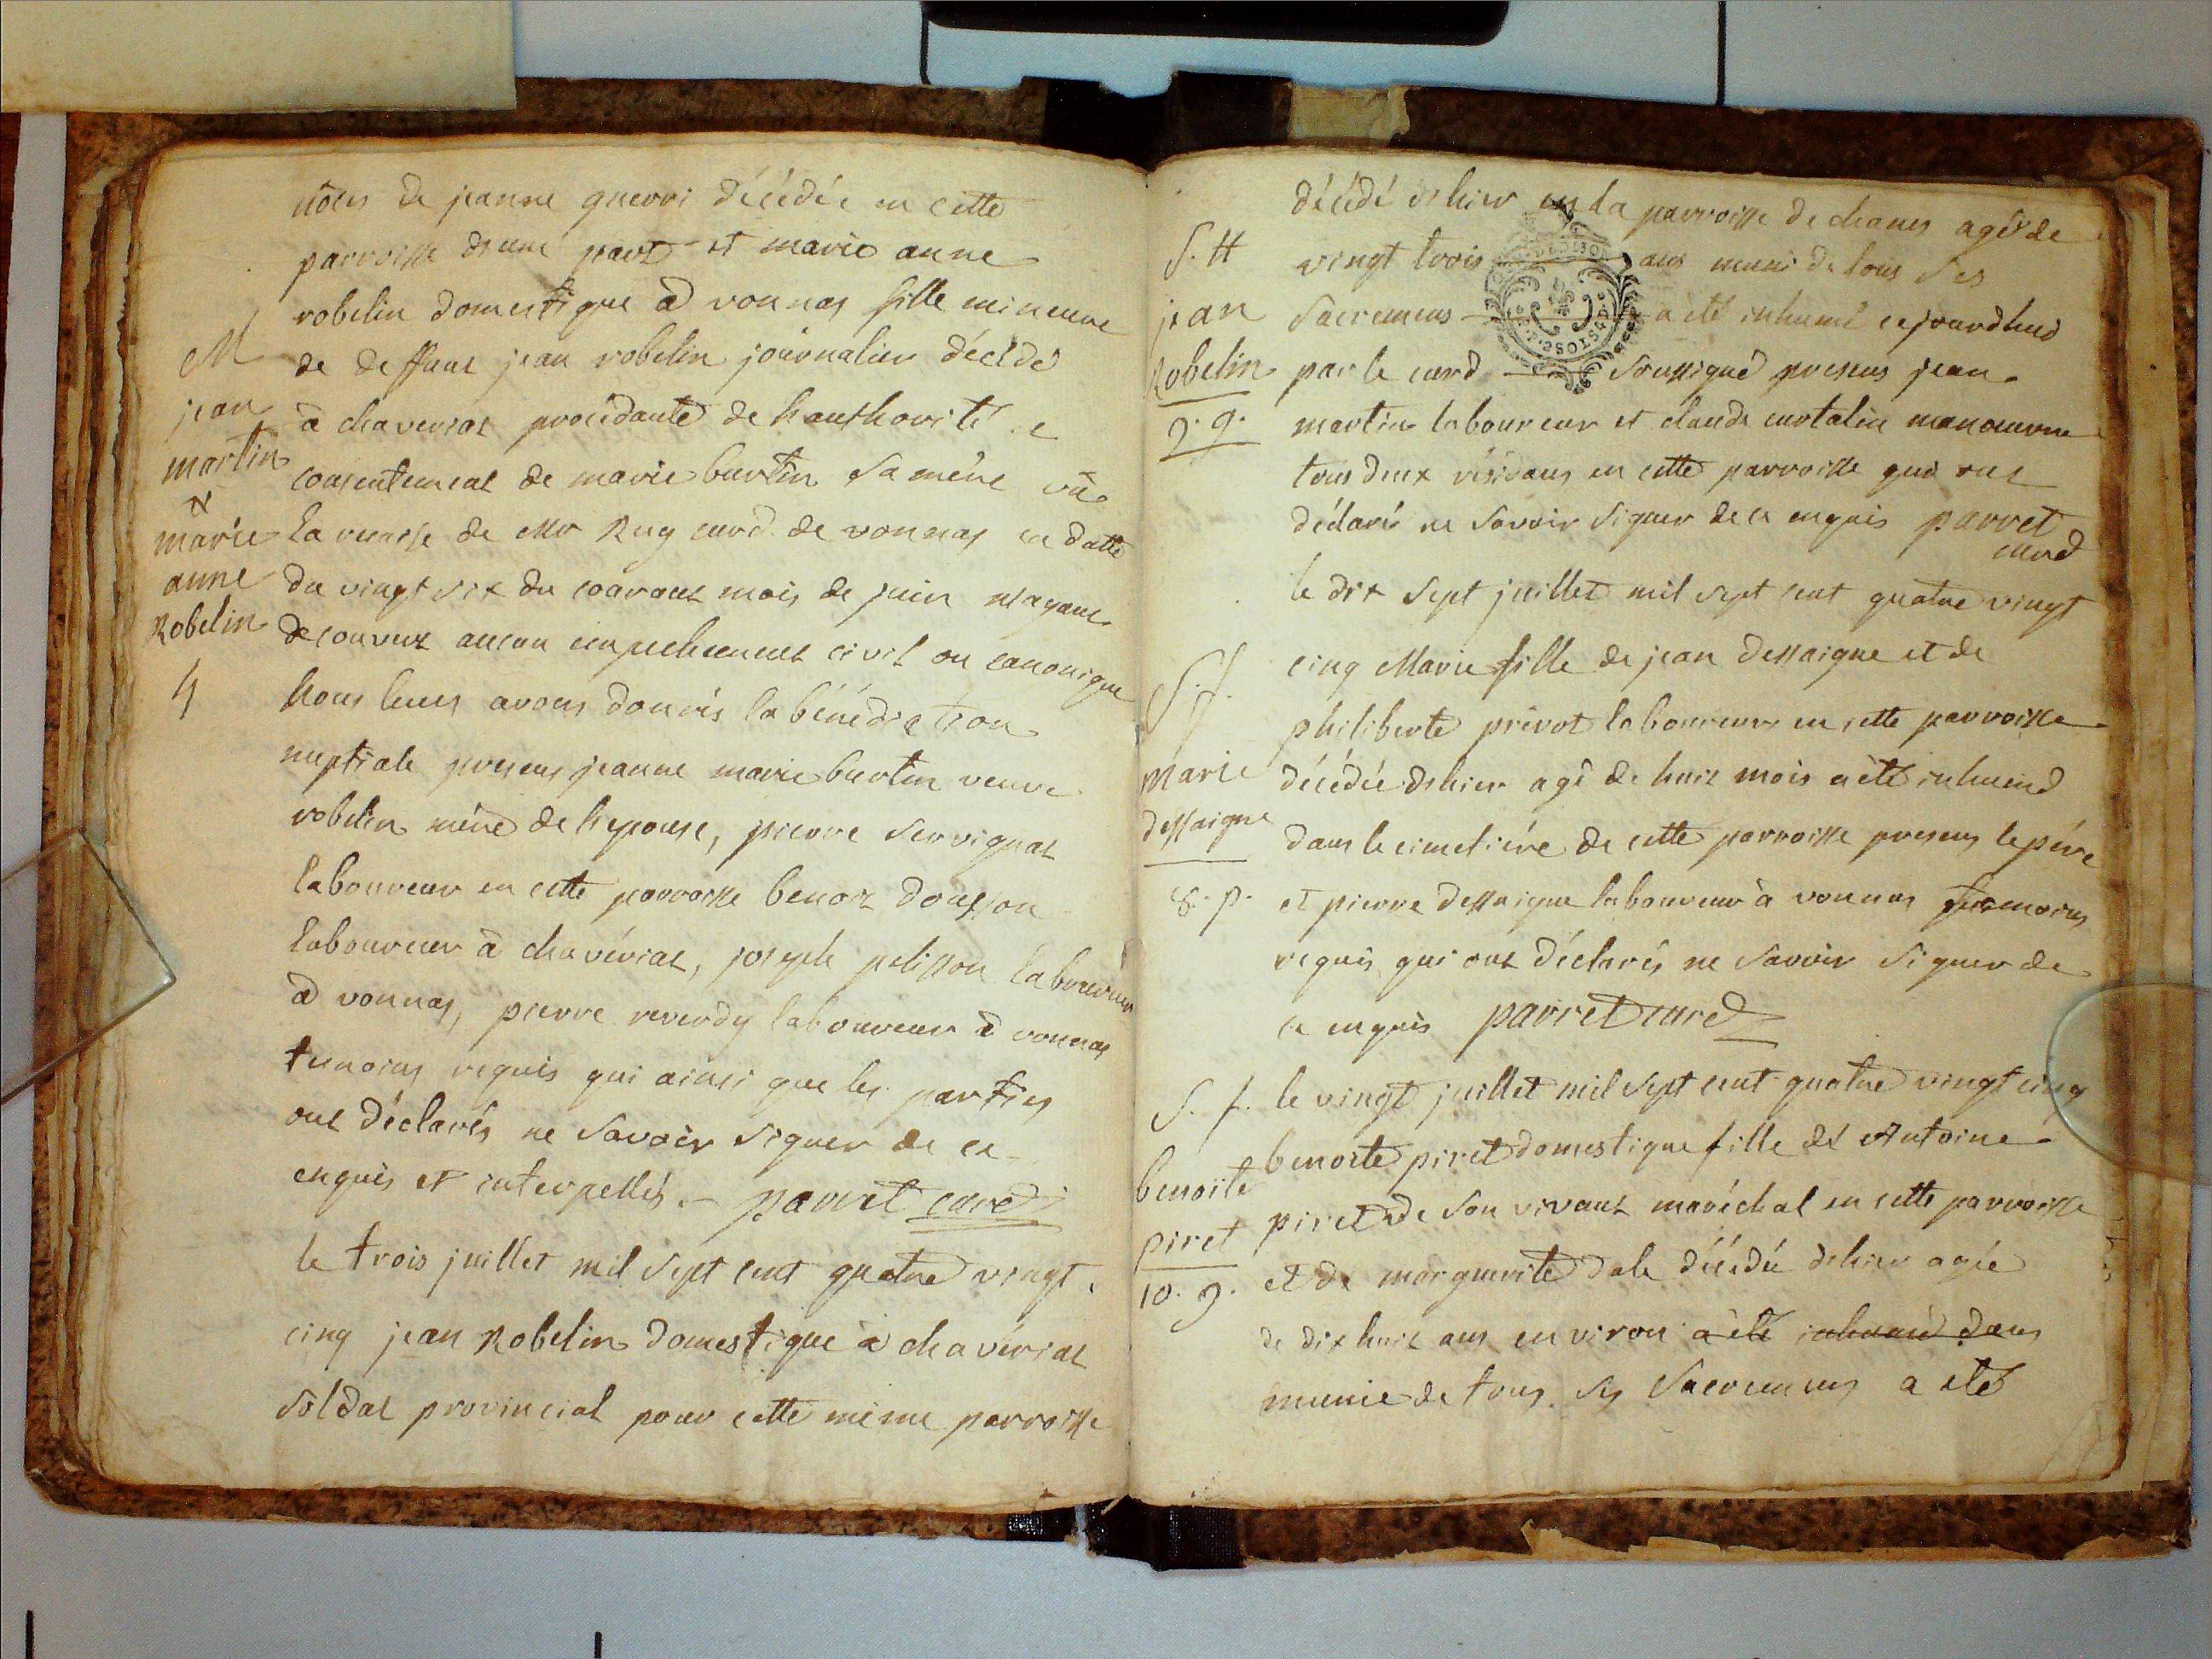 nôces de jeanne guerri décédée en cette
parroisse d'une part et marie anne
robelin domestique à vonnas fille mineure
de deffunt jean robelin journalier décédé
à chaveriat procédante de l'authorité et
consentement de marie burtin sa mére vû
la remise de Mr Ruy curé de vonnas en datte
du vingt six du courant mois de juin n'ayant
découvert aucun empechement civil ou canonique
Nous leurs avons donnés la bénédiction
nuptiale presens jeanne marie burtin veuve
robelin mére de l'epouse, pierre servignat
laboureur en cette parroisse benoit
laboureur à chavériat, joseph pelisson laboureur
à vonnas, pierre reverdy laboureur à vonnas
temoins requis qui ainsi que les parties
ont déclarés ne savoir signer de ce
enquis et interpellés. parret curé
M
jean
martin
&
marie
anne
Robelin
4
le trois juillet mil sept cent quatre vingt
cinq jean Robelin domestique à chavériat
soldat provincial pour cette même parroisse
décédé d'hier en la parroisse de chanes agé de
vingt trois ans muni de tous ses
sacremens a été inhumé cejourdhui
par le curé soussigné presens jean
martin laboureur et claude curtalin manoeuvre
tous deux résidans en cette parroisse qui ont
déclaré ne savoir signer de ce enquis parret
curé
S. H
jean
Robelin
9. g.
le dix sept juillet mil sept cent quatre vingt
cinq Marie fille de jean dessaigne et de
philiberte prévot laboureurs en cette parroisse
décédée d'hier agé de huit mois a été inhumé
dans le cimetiére de cette parroisse presens le pére
et pierre dessaigne laboureur à vonnas temoins
requis qui ont déclarés ne savoir signer de
ce enquis parret curé
S. f.
marie
dessaigne
8. p.
le vingt juillet mil sept cent quatre vingt cinq
benoite piret domestique fille de Antoine
piret de son vivant maréchal en cette parroisse
et de marguerite dale décédé d'hier agée
de dix huit ans environ a été inhumé dans
munie de tous ses sacremens a été
S. f.
benoite
piret
10. g.